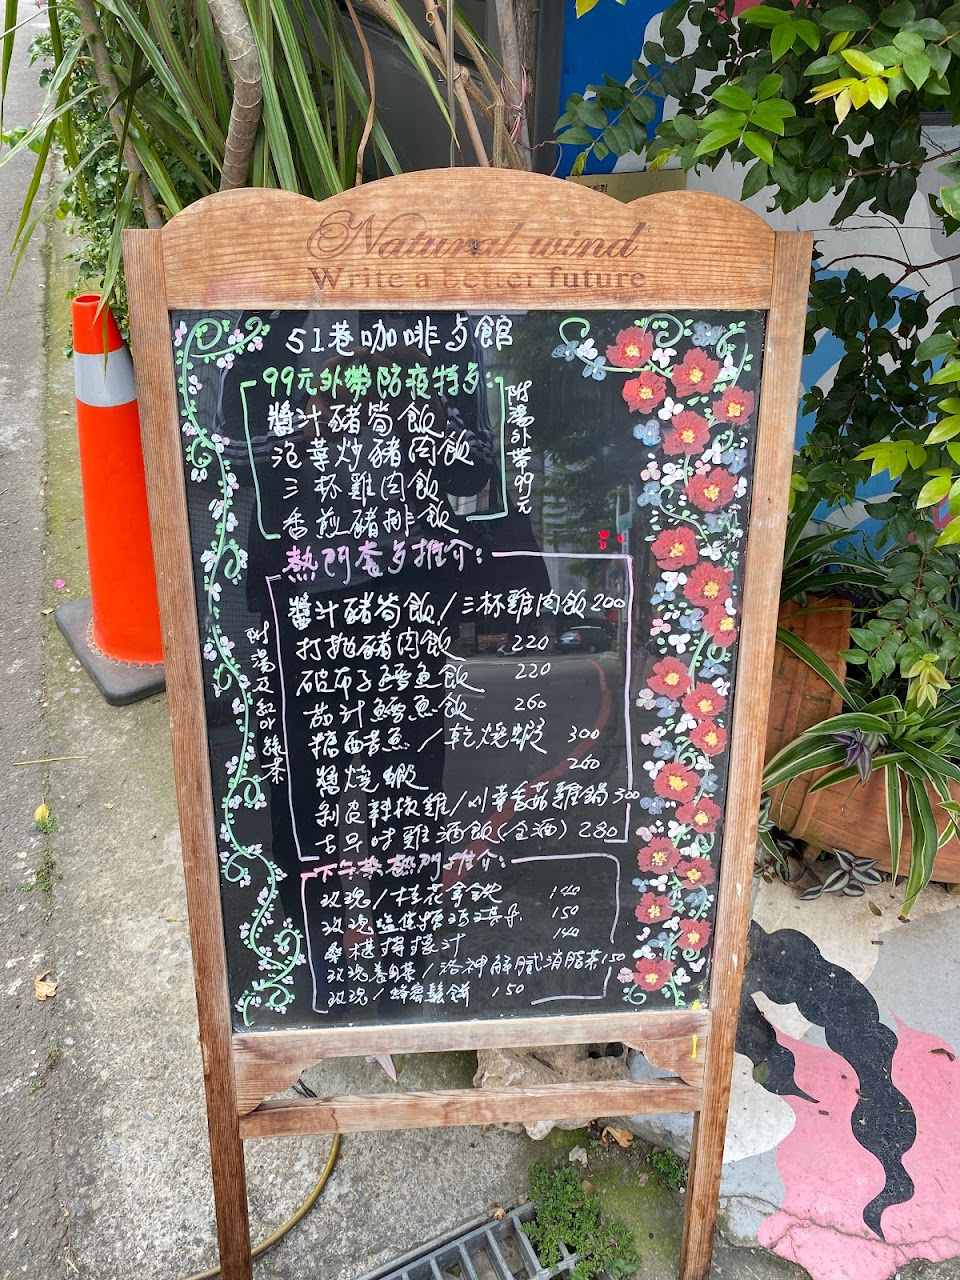 Natural wind
Write a better future
51巷咖啡与館
99元外帶防疫特
附湯外帶99元
醬汁豬筍飯
泡菜炒豬肉飯
三杯雞肉飯
香煎豬排飯
熱門套与推介:
附湯及紅or綠茶
醬汁豬筍飯/三杯雞肉飯 200
打拋豬肉飯 220
破布子鱈魚飯 220
茄汁鱈魚飯 260
糖醋魚/乾燒蝦 300
醬燒蝦 260
剝皮辣椒雞/川車香菇雞鍋 300
古早味雞酒飯(全酒) 280
下午茶熱門推介:
玫瑰/桂花拿鐵 140
玫瑰塩焦糖瑪琪朵 150
桑椹檸檬汁 140
玫瑰養身茶/洛神解膩消脂茶 150
玫瑰/蜂蜜鬆餅 150